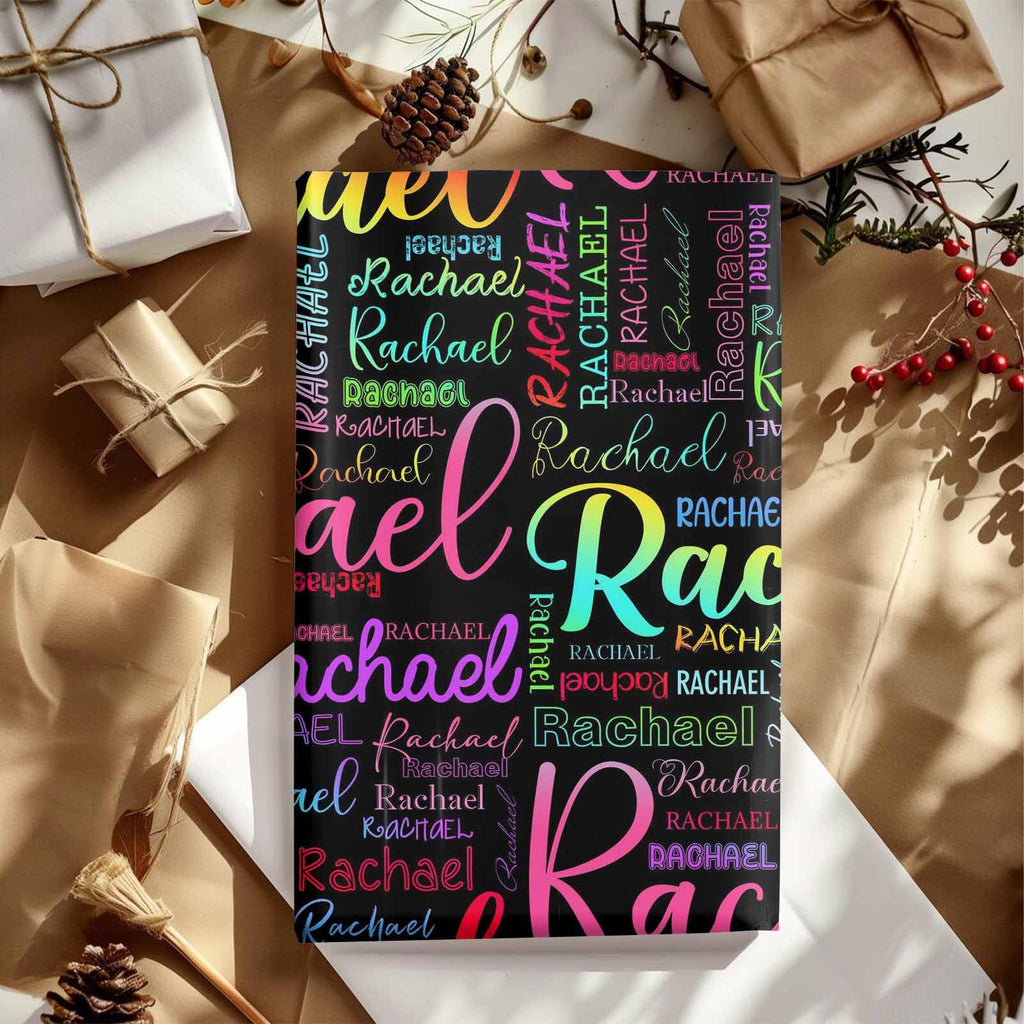 ael
RACHAEL
Rachael
RACHAEL
RACHAEL
RACHAEL
RACHAEL
Rachael
Rachael
Rachael
Rachael
Rachael
Rachael
Rachael
Rachael
Rachael
RACHAEL
Rachael
Rachael
Rac
ael
RACHAE
Rac
Rachael
Rachael
RACHAEL
RACHAEL
RACHA
RACHAEL
achael
Rachael
RACHAEL
AEL
Rachael
Rachael
Rachael
ael
Rachael
Rachae
RACHAEL
RACHAEL
Rachael
RACHAEL
Rachael
Rachael
Rac